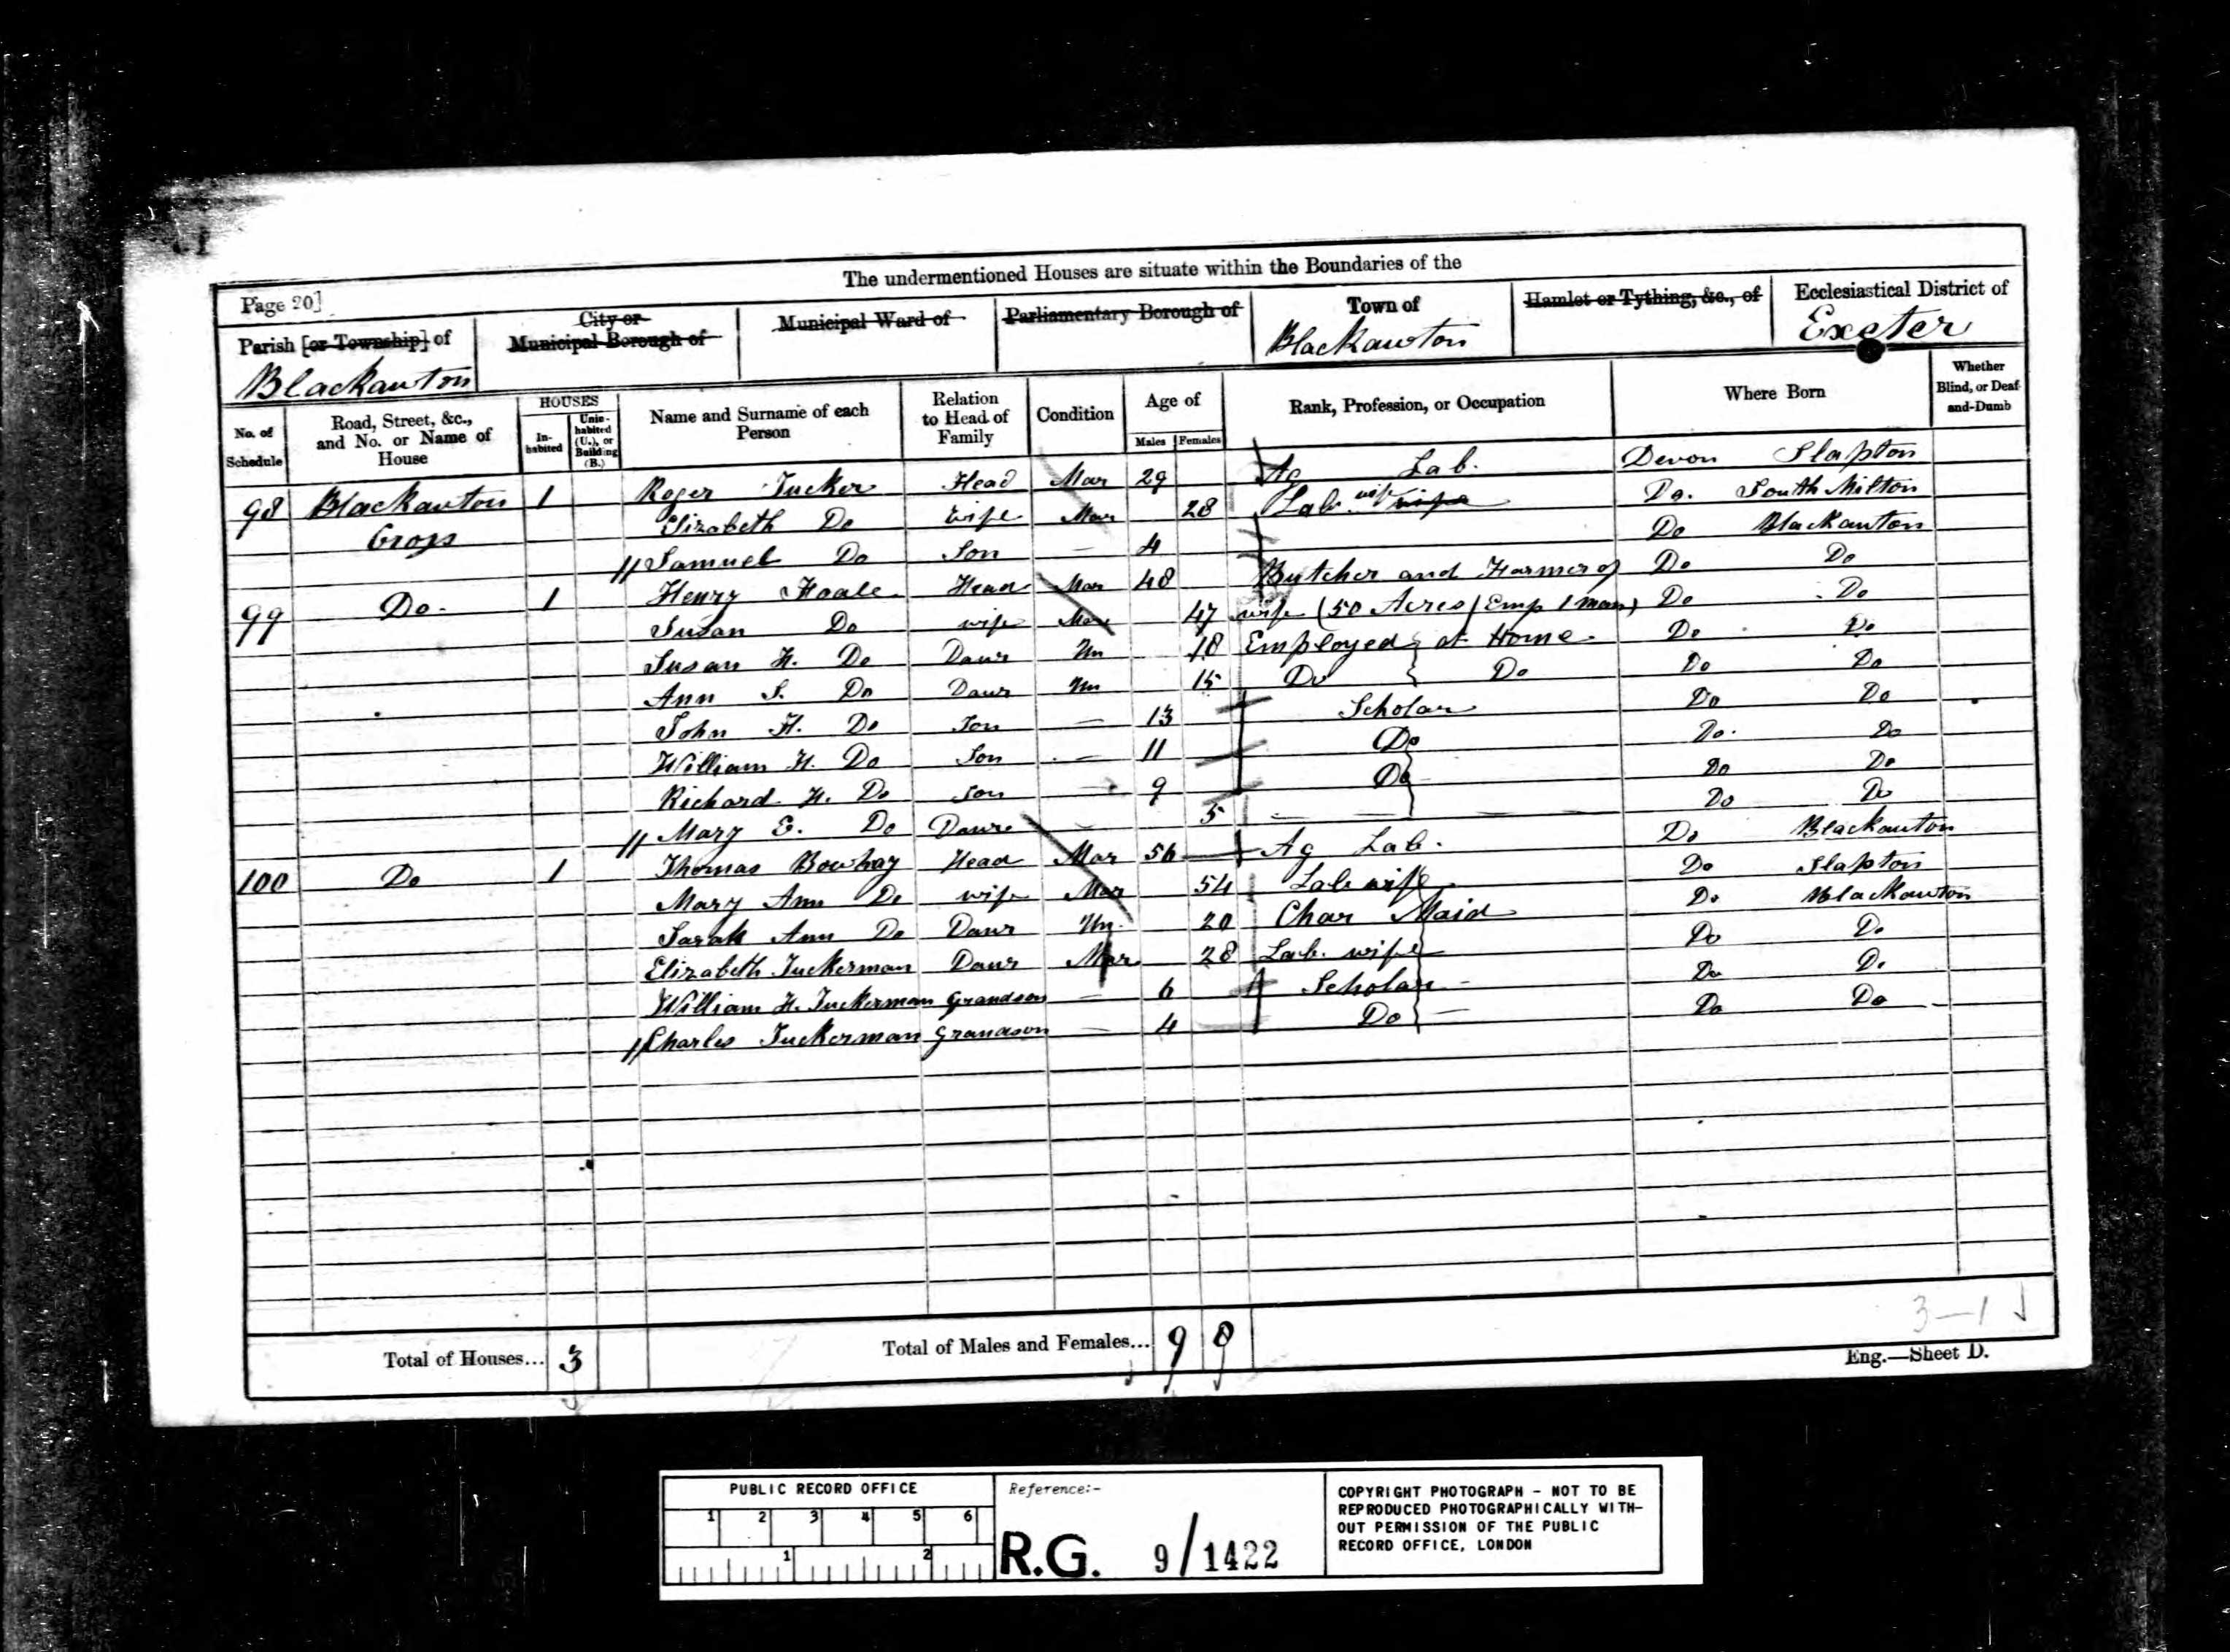 The undermentioned Houses are situate within the Boundaries of the
Page 20]
Parish [or Township] of
Blackawton
City or
Municipal Borough of
Municipal Ward of
Parliamentary Borough of
Town of
Blackawton
Hamlet or Tything, &c., of
Ecclesiastical District of
Exeter
No. of Schedule
Road, Street, &c., and No. or Name of House
HOUSES
In-habited
Unin-habited (U.), or Building (B.)
Name and Surname of each Person
Relation to Head of Family
Condition
Age of
Males Females
Rank, Profession, or Occupation
Where Born
Whether Blind, or Deaf-and-Dumb
98 Blackawton 1 Roger Tucker Head Mar 29 Ag Lab. Devon Slapton
Cross Elizabeth Do Wife Mar 28 Lab. wife wife Do. South Milton
Samuel Do Son — 4 Do Blackawton
99 Do. 1 Henry Hoale Head Mar 48 Butcher and Farmer of Do Do
Susan Do wife Mar 47 wife (50 Acres / Emp 1 man) Do Do
Susan H. Do Daur Un 18 Employed at Home. Do Do
Ann S. Do Daur Un 15 Do Do Do Do
John H. Do Son — 13 Scholar Do Do
William H. Do Son — 11 Do Do. Do
Richard H. Do Son — 9 Do Do Do
Mary E. Do Daur — 5 — — — Do Do
100 Do 1 Thomas Bowhay Head Mar 56 Ag Lab. Do Blackawton
Mary Ann Do wife Mar 54 Lab wife Do Slapton
Sarah Ann Do Daur Un. 20 Char Maid Do Blackawton
Elizabeth Tuckerman Daur Mar 28 Lab. wife Do Do
William H. Tuckerman Grandson — 6 Scholar Do Do
Charles Tuckerman Grandson — 4 Do Do Do
3—1
Total of Houses... 3 Total of Males and Females... 9 8
Eng.—Sheet D.
PUBLIC RECORD OFFICE
1 2 3 4 5 6
1 2
Reference:-
R.G. 9/1422
COPYRIGHT PHOTOGRAPH - NOT TO BE
REPRODUCED PHOTOGRAPHICALLY WITH-
OUT PERMISSION OF THE PUBLIC
RECORD OFFICE, LONDON